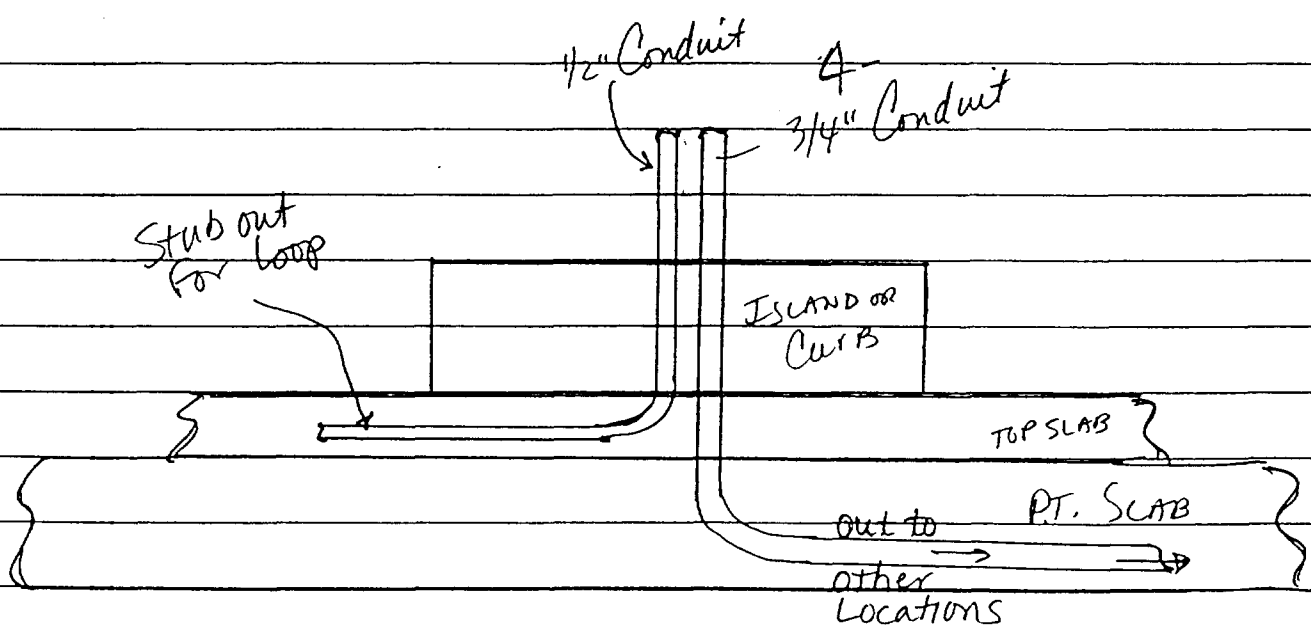 1/2" Conduit
4-
3/4" Conduit
Stub out
For Loop
ISLAND OR
CurB
TOP SLAB
P.T. SLAB
out to
other
Locations